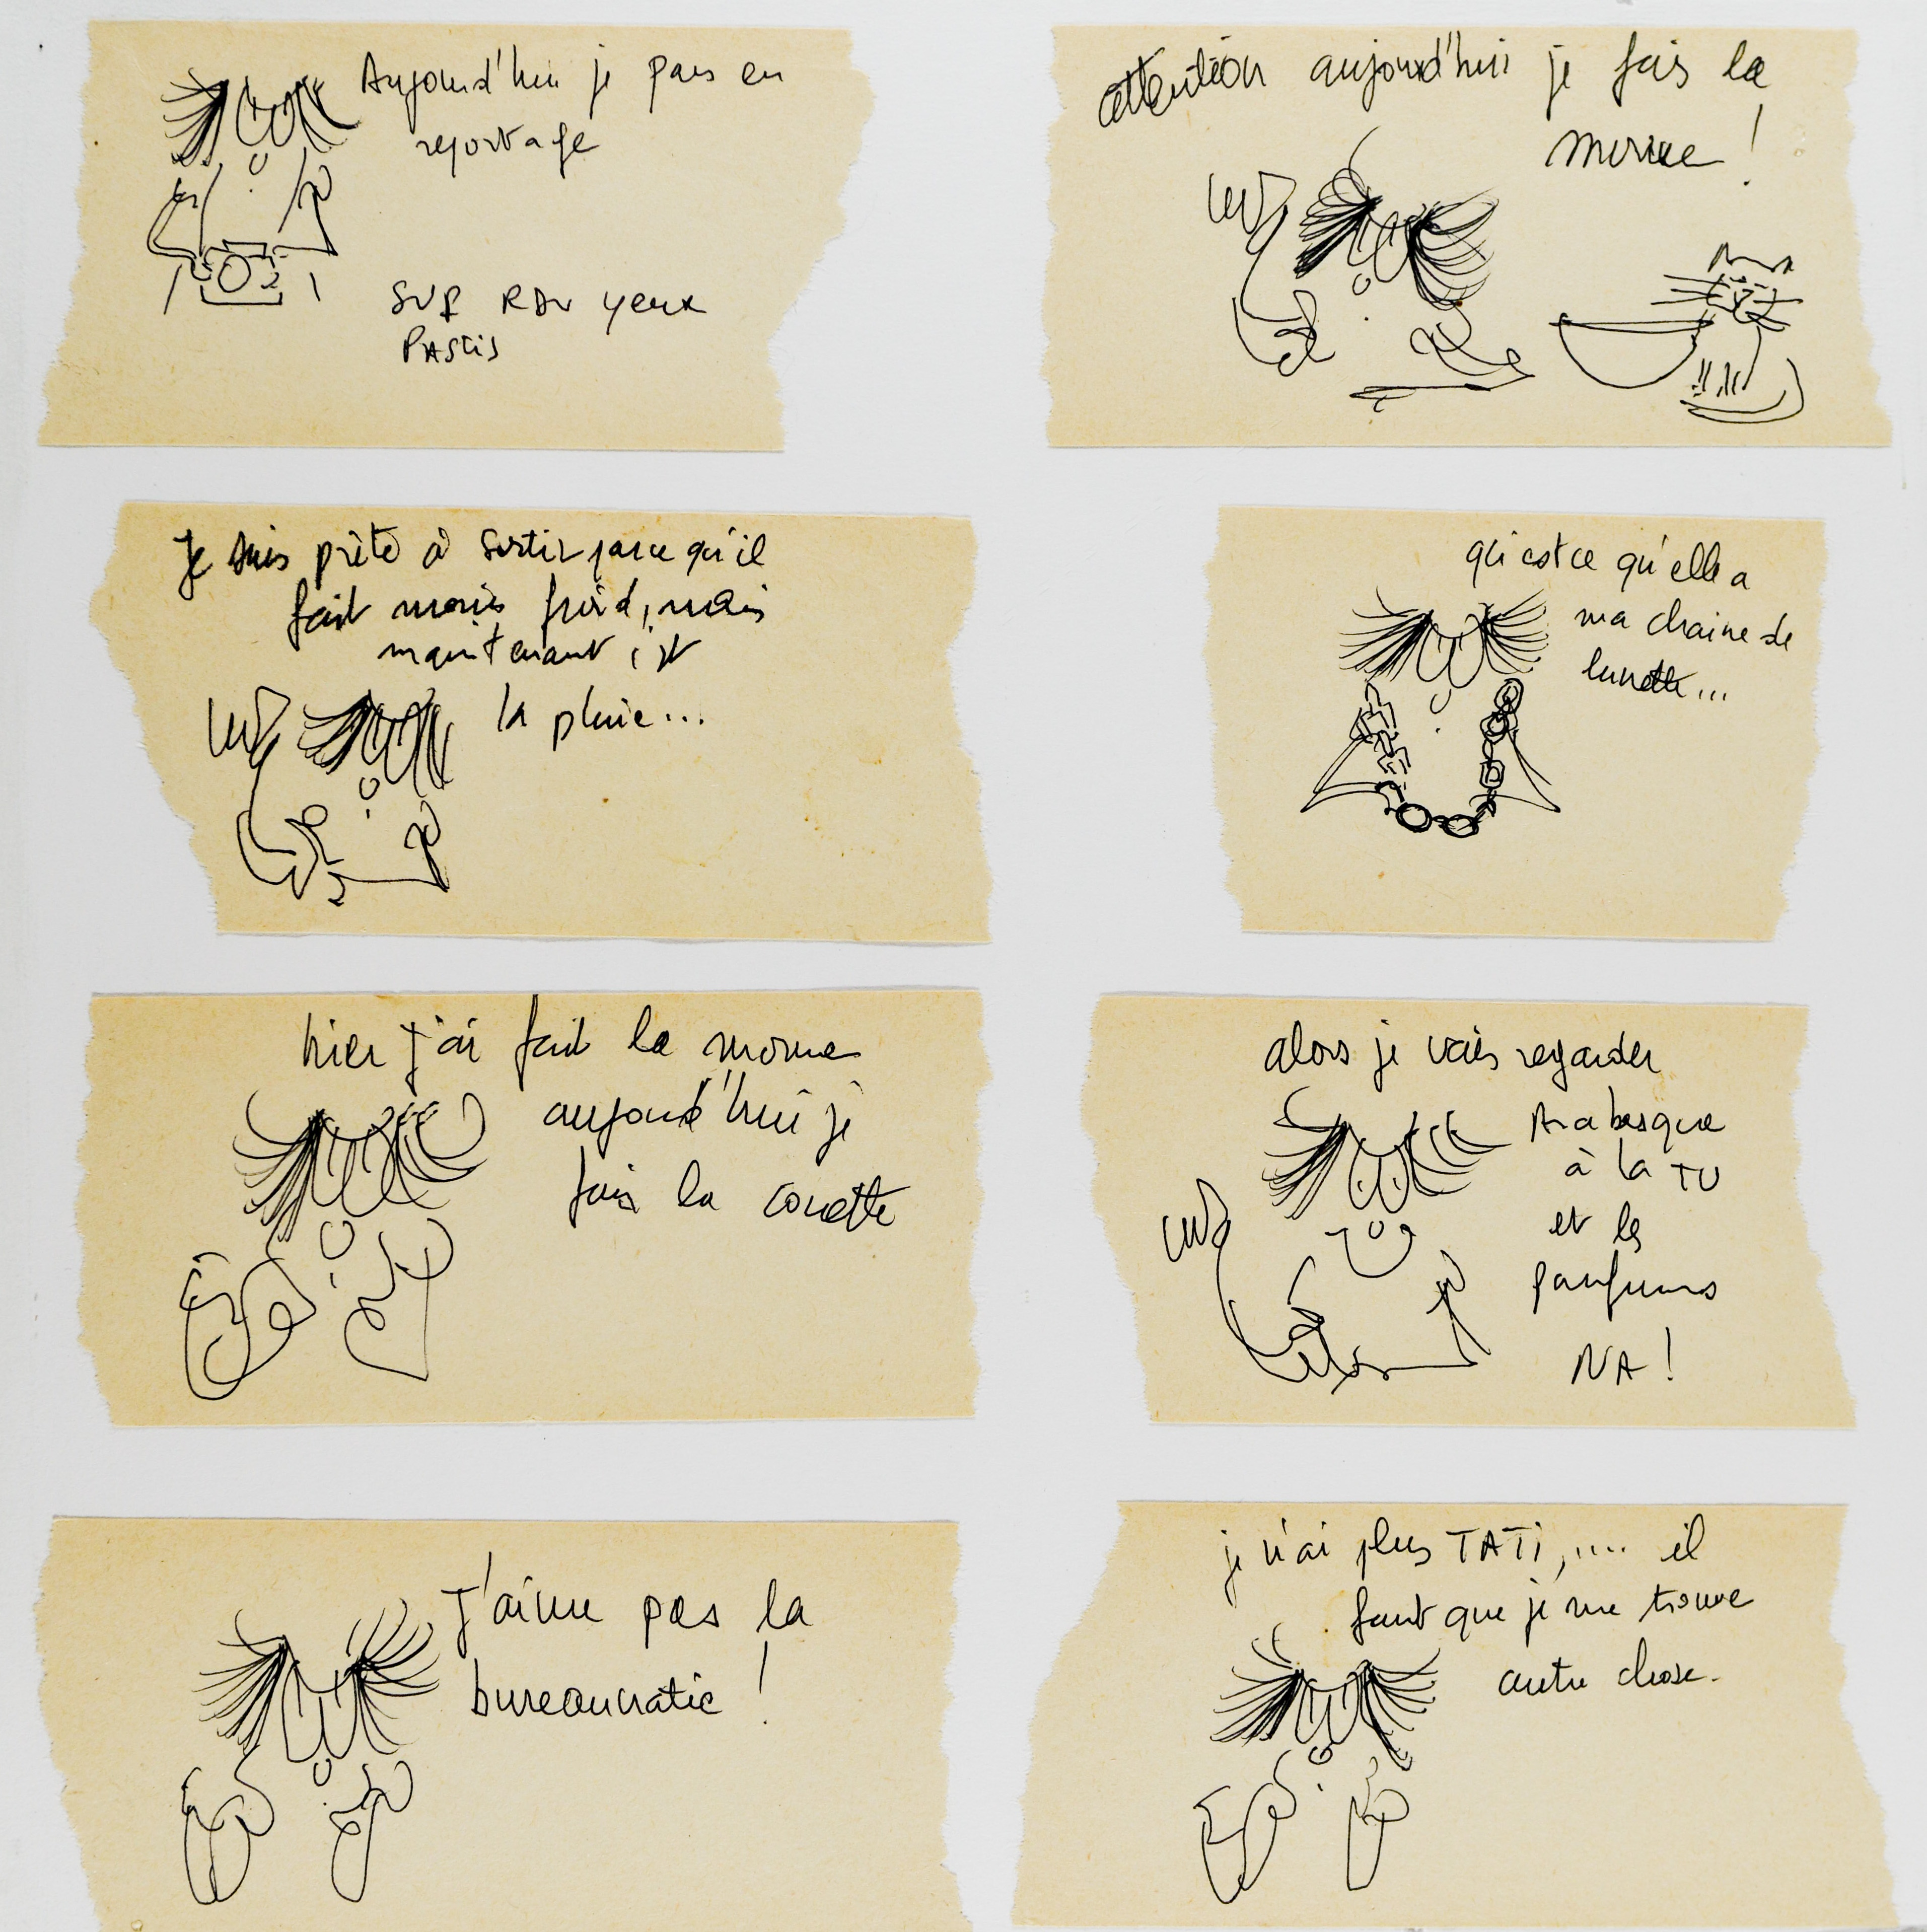 Aujourd'hui je pars en
reportage
SUR RDV yeux
PASTIS
attention aujourd'hui je fais la
!
Je suis prête à sortir parce qu'il
fait moins froid, mais
maintenant c'est
la pluie...
qu'est ce qu'elle a
ma chaine de
lunette...
hier j'ai fait la
aujourd'hui je
fais la couette
alors je vais regarder
Arabesque
à la TV
et les
parfums
NA !
J'aime pas la
bureaucratie !
je n'ai plus TATI,.... il
faut que je me trouve
autre chose.